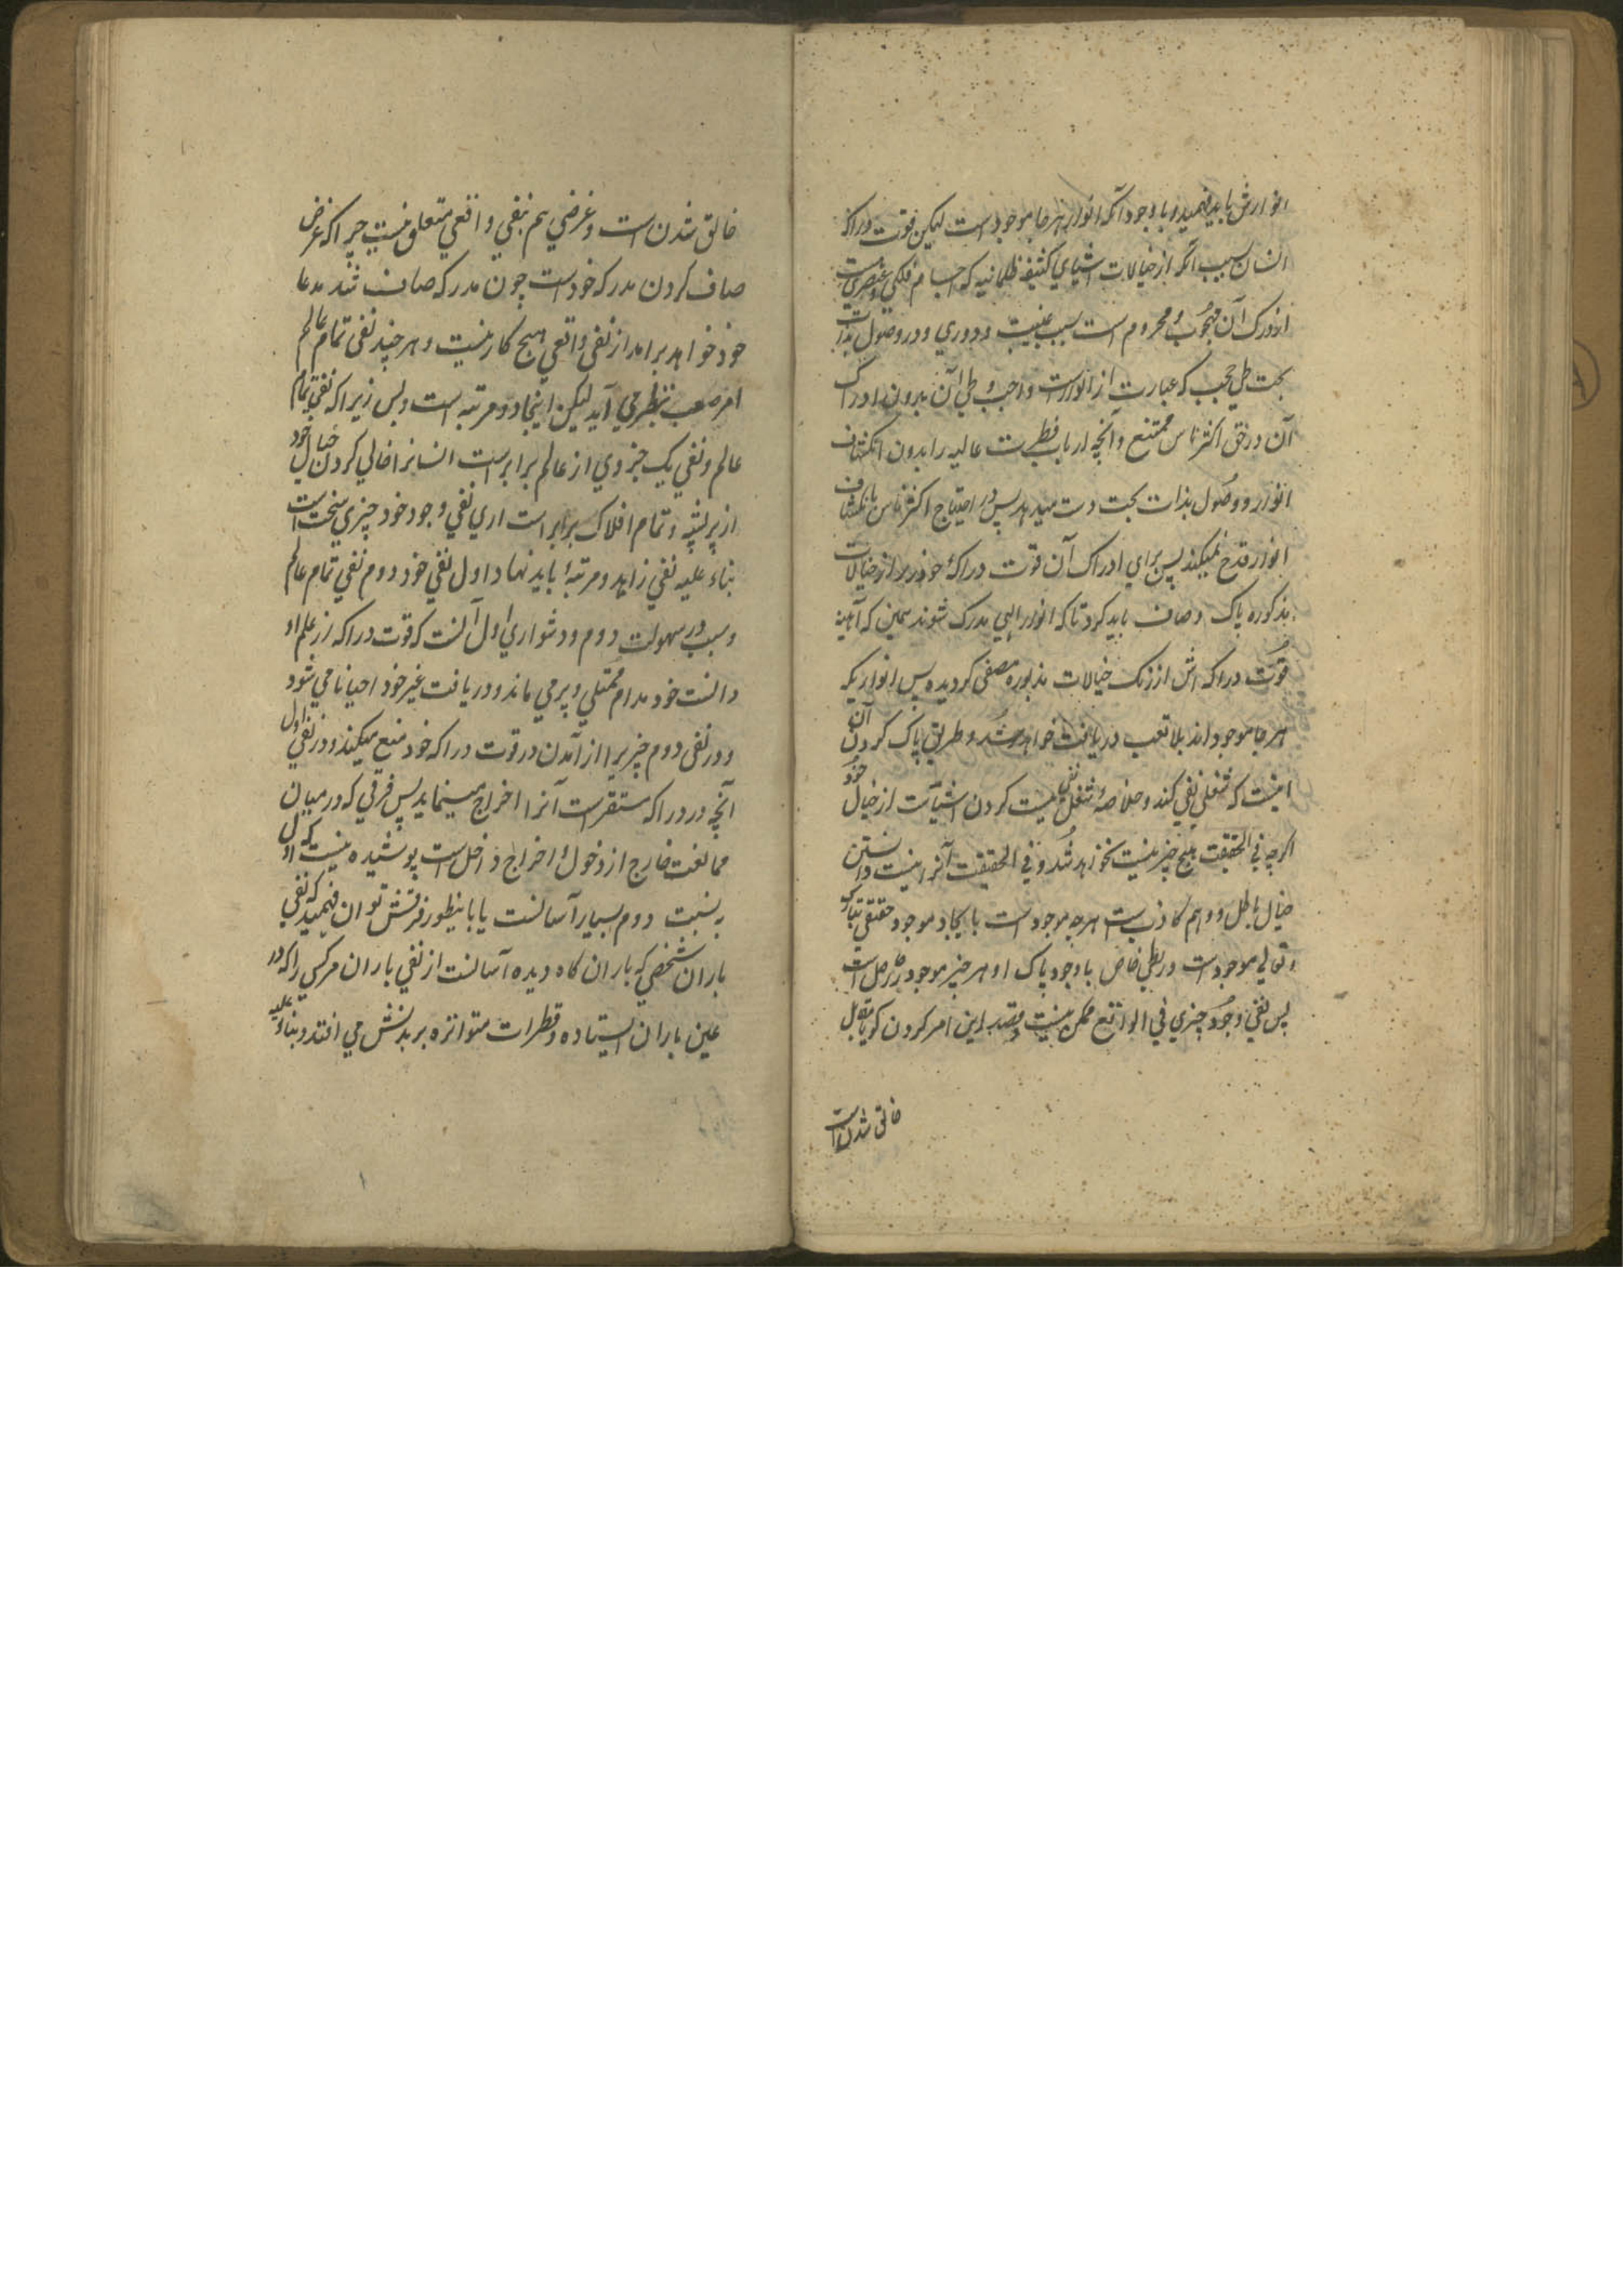 انوارش باید فهمید و با وجود آنکه انوار هر جا موجود است لیکن قوت دراکهٔ
انسان بسبب آنکه از خیالات اشیای کثیفهٔ ظلمانیه که اجسام فلکی و عنصریست
از درک آن محجوب و محروم است بسبب غیبت و دوری و در وصول بذات
بحت طی حجب که عبارت از انوارست واجب و طی آن بدون ادراک
آن در حق اکثر ناس ممتنع و آنچه ارباب فطرت عالیه را بدون انکشاف
انوار و وصول بذات بحت دست میدهد پس در احتیاج اکثر ناس بانکشاف
انوار قدح نمیکند پس برای ادراک آن قوت دراکهٔ خود را از خیالات
مذکوره پاک و صاف باید کرد تا که انوار الهی مدرک شوند همین که آیینهٔ
قوت دراکه اش از زنگ خیالات مذبوره مصفی گردیده پس انواریکه
هر جا موجود اند بلا تعب دریافت خواهد شد و طریق پاک کردن آن
اینست که شغل نفی کند و خلاصهٔ شغل نفی نیست کردن اشیاست از خیال خود
اگرچه فی الحقیقت هیچ چیز نیست نخواهد شد و فی الحقیقت آنرا نیست دانستن
خیال باطل و وهم کاذب ست هر چه موجود است بایجاد موجود حقیقی تبارک
و تعالی موجود ست و ربطی خاص با وجود پاک او هر چیز موجود را حاصل است
پس نفی وجود چیزی فی الواقع ممکن نیست و قصد این امر کردن گویا مقابل
خالق شدن است
خالق شدن است و غرضی هم بنفی واقعی متعلق نیست چرا که غرض
صاف کردن مدرکه خود ست چون مدرکه صاف شد مدعا
خود خواهد برامد از نفی واقعی هیچ کار نیست و هر چند نفی تمام عالم
امر صعب بنظر می آید لیکن اینجا دو مرتبه است و بس زیرا که نفی تمام
عالم و نفی یک جزوی از عالم برابرست انسانرا خالی کردن خیال خود
از پر پشه و تمام افلاک برابر است اری نفی وجود خود چیزی سخت است
بناء علیه نفی را دو مرتبهٔ باید نهاد اول نفی خود دوم نفی تمام عالم
و سبب در سهولت دوم و دشواری اول آنست که قوت دراکه از علم او
دانست خود مدام ممتلی و پر می ماند و دریافت غیر خود احیانا می شود
و در نفی دوم چیزیرا از آمدن در قوت دراکه خود منع میکند و در نفی اول
آنچه در دراکه مستقرست آنرا اخراج مینماید پس فرقی که در میان
ممانعت خارج از دخول و اخراج داخل است پوشیده نیست که اول
به نسبت دوم بسیار آسانست یا باینطور فرقش توان فهمید که نفی
باران شخصی که باران گاه دیده آسانست از نفی باران مر کسی را که در
عین باران ایستاده و قطرات متواتره بر بدنش می افتد و بناء علیه